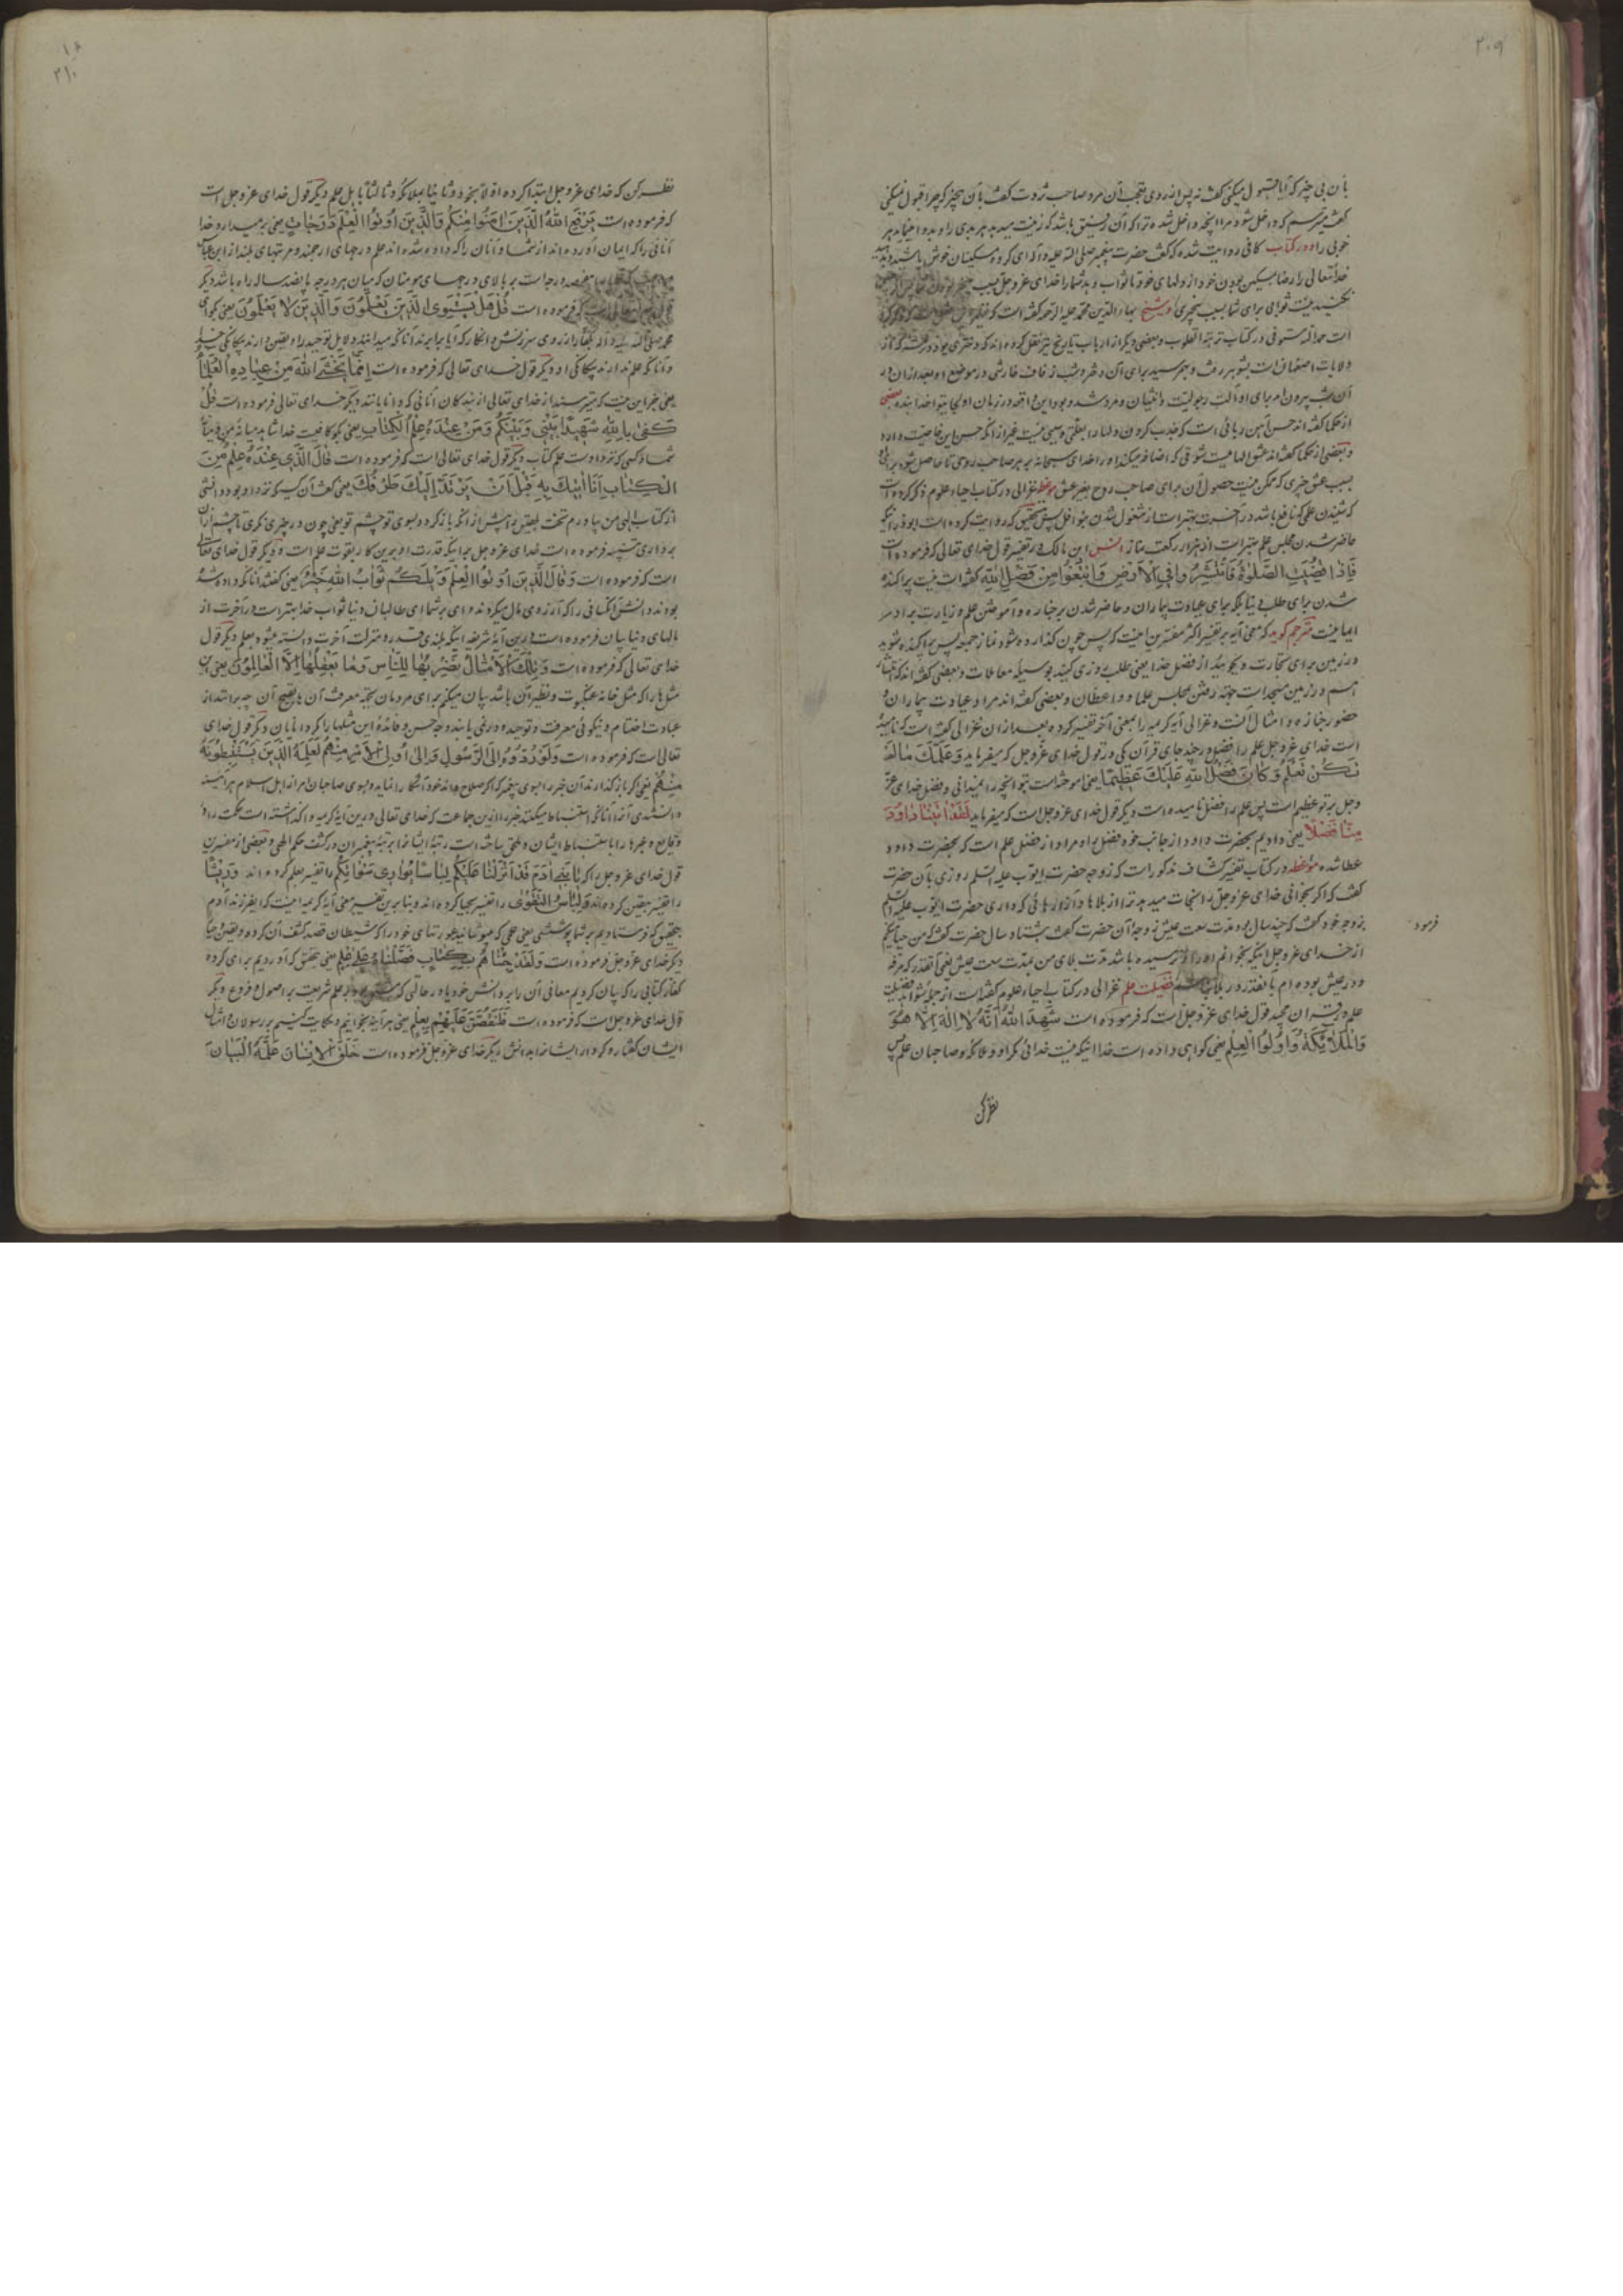 ۲۰۹
بآن بی چیز که آیا قبول میکنی گفت نه پس از روی تعجب آن مرد صاحب ثروت گفت بآن بیچیز که چرا قبول نمیکنی
گفت میترسم که داخل شود مرا آنچه داخل شد ترا که آن رفیق باشد که زینت میدهد هر بدی را و بد مینماید هر
خوبی را و در کتاب کافی روایت شده که گفت حضرت پیغمبر صلی الله علیه و آله ای گروه مسکینان خوش باشید و بدهید
خدا تعالی را رضا بمسکین بودن خود از دلهای خود تا ثواب دهد شما را خدای عز و جل بسبب
نکنید نیست ثوابی برای شما بسبب بیچیزی و شیخ بهاء الدین محمد علیه الرحمه گفته است که
است حمد الله مستوفی در کتاب نزهة القلوب و بعضی دیگر از ارباب تاریخ نیز نقل کرده اند که دختری بود در قمشه که از
ولایات اصفهان است بشوهر رفت و بهم رسید برای آن دختر در شب زفاف خارشی در موضع او بعد از آن در
آن شب بیرون آمد برای او آلت رجولیت و انثیان و مرد شد و بود این واقعه در زمان اولجایتو خدا بنده بعضی
از حکما گفته اند حسن آهن ربائی است که جذب کردن دلها را بعلتی و سببی نیست غیر از آنکه حسن این خاصیت دارد
و بعضی از حکما گفته اند عشق الهامیست شوقی که اضافه میکند او را خدای سبحانه بر هر صاحب روحی تا حاصل شود برای او
بسبب عشق چیزی که ممکن نیست حصول آن برای صاحب روح بغیر عشق موعظه غزالی در کتاب احیاء علوم ذکر کرده است
که شنیدن علمی که نافع باشد در آخرت بهتر است از مشغول شدن بنوافل پس بتحقیق که روایت کرده است ابوذر اینکه
حاضر شدن مجلس علم بهتر است از هزار رکعت نماز انس ابن مالک در تفسیر قول خدای تعالی که فرموده است
فَاِذَا قُضِیَتِ الصَّلٰوةُ فَانْتَشِرُوا فِی الْاَرْضِ وَابْتَغُوا مِنْ فَضْلِ اللّٰهِ گفته است نیست پراکنده
شدن برای طلب دنیا بلکه برای عیادت بیماران و حاضر شدن بر جنازه و آموختن علم و زیارت برادر
ایمانیست مترجم گوید که معنی آیه بر تفسیر اکثر مفسرین اینست که پس چون گذارده شود نماز جمعه پس پراکنده شوید
در زمین برای تجارت و بجوئید از فضل خدا یعنی طلب روزی کنید بوسیله معاملات و بعضی گفته اند که انتشار
هم در زمین مسجد است جهة رفتن مجلس علما و واعظان و بعضی گفته اند مراد عیادت بیماران و
حضور جنازه و امثال آنست و غزالی آیه کریمه را بمعنی آخر تفسیر کرده بعد از آن غزالی گفته است که نامیده
است خدای عز و جل علم را فضل در چند جای قرآن یکی در قول خدای عز و جل که میفرماید وَعَلَّمَكَ مَا لَمْ
تَكُنْ تَعْلَمُ وَكَانَ فَضْلُ اللّٰهِ عَلَیْكَ عَظِیمًا یعنی آموخته است بتو آنچه را نمیدانی و فضل خدای عز
و جل بر تو عظیم است پس علم را فضل نامیده است و دیگر قول خدای عز و جل است که میفرماید لَقَدْ اٰتَیْنَا دَاوُدَ
مِنَّا فَضْلًا یعنی دادیم بحضرت داود از جانب خود فضل را و مراد از فضل علم است که بحضرت داود
عطا شده موعظه در کتاب تفسیر کشاف مذکور است که زوجه حضرت ایوب علیه السلم روزی بآن حضرت
گفت که اگر بخوانی خدای عز و جل را نجات میدهد ترا از بلاها و آزارهائی که داری حضرت ایوب علیه السلم
بزوجه خود گفت که چند سال بود مدت سعت عیش زوجه آن حضرت گفت هشتاد سال حضرت گفت که من حیا میکنم
فرمود
از خدای عز و جل اینکه بخوانم او را و نرسیده باشد مدت بلای من بمدت سعت عیش یعنی آنقدر که مرفه
و در عیش بوده ام بآنقدر در بلا فضیلت علم غزالی در کتاب احیاء علوم گفته است از جمله شواهد فضیلت
علم در قرآن مجید قول خدای عز و جل است که فرموده است شَهِدَ اللّٰهُ اَنَّهُ لَا اِلٰهَ اِلَّا هُوَ
وَالْمَلَائِكَةُ وَاُولُوا الْعِلْمِ یعنی گواهی داده است خدا اینکه نیست خدائی مگر او و ملائکه و صاحبان علم پس
نظر کن
۲۱۰
نظر کن که خدای عز و جل ابتدا کرده اولا بخود و ثانیا بملائکه و ثالثا باهل علم دیگر قول خدای عز و جل است
که فرموده است یَرْفَعِ اللّٰهُ الَّذِینَ اٰمَنُوا مِنْكُمْ وَالَّذِینَ اُوتُوا الْعِلْمَ دَرَجَاتٍ یعنی بر میدارد خدا
آنانی را که ایمان آورده اند از شما و آنان را که داده شده اند علم درجهای ارجمند و مرتبهای بلند از ابن عباس
هفتصد درجه است بر بالای درجهای مومنان که میان هر درجه پانصد ساله راه باشد دیگر
که فرموده است قُلْ هَلْ یَسْتَوِی الَّذِینَ یَعْلَمُونَ وَالَّذِینَ لَا یَعْلَمُونَ یعنی بگو ای
محمد صلی الله علیه و آله بکفار از روی سرزنش و انکار که آیا برابرند آنانکه میدانند دلایل توحید را و یقین دارند بیگانگی خدا
و آنانکه علم ندارند بیگانگی او و دیگر قول خدای تعالی که فرموده است اِنَّمَا یَخْشَی اللّٰهَ مِنْ عِبَادِهِ الْعُلَمَاءُ
یعنی جز این نیست که میترسند از خدای تعالی از بندگان آنانی که دانایانند دیگر خدای تعالی فرموده است قُلْ
كَفٰی بِاللّٰهِ شَهِیدًا بَیْنِی وَبَیْنَكُمْ وَمَنْ عِنْدَهُ عِلْمُ الْكِتَابِ یعنی بگو کافیست خدا شاهد میانه من و میانه
شما و کسی که نزد اوست علم کتاب دیگر قول خدای تعالی است که فرموده است قَالَ الَّذِی عِنْدَهُ عِلْمٌ مِنَ
الْكِتَابِ اَنَا اٰتِیكَ بِهِ قَبْلَ اَنْ یَرْتَدَّ اِلَیْكَ طَرْفُكَ یعنی گفت آن کسیکه نزد او بود دانشی
از کتاب الهی من بیاورم تخت بلقیس را پیش از آنکه باز گردد بسوی تو چشم تو یعنی چون در چیزی نگری تا چشم از آن
برداری تنبیه فرموده است خدای عز و جل بر اینکه قدرت او برین کار بقوت علم است و دیگر قول خدای تعالی
است که فرموده است وَقَالَ الَّذِینَ اُوتُوا الْعِلْمَ وَیْلَكُمْ ثَوَابُ اللّٰهِ خَیْرٌ یعنی گفتند آنانکه داده شده
بودند دانش آنکسانی را که آرزوی مال میکردند وای بر شما ای طالبان دنیا ثواب خدا بهتر است در آخرت از
مالهای دنیا بیان فرموده است درین آیه شریفه اینکه بلندی قدر و منزلت آخرت دانسته میشود بعلم دیگر قول
خدای تعالی که فرموده است وَتِلْكَ الْاَمْثَالُ نَضْرِبُهَا لِلنَّاسِ وَمَا یَعْقِلُهَا اِلَّا الْعَالِمُونَ یعنی این
مثلها را که مثل خانه عنکبوت و نظیر آن باشد بیان میکنم برای مردمان بجهة معرفت آن یا بقبیح آن چه برا ابتدا از
عبادت اصنام و نیکوئی معرفت و توحید و در نمی یابند وجه حسن و فائده این مثلها را مگر دانایان دیگر قول خدای
تعالی است که فرموده است وَلَوْ رَدُّوهُ اِلَی الرَّسُولِ وَاِلٰی اُولِی الْاَمْرِ مِنْهُمْ لَعَلِمَهُ الَّذِینَ یَسْتَنْبِطُونَهُ
مِنْهُمْ یعنی اگر باز گذارند آن خبر را بسوی پیغمبر که اگر صلاح داند خود آشکارا نماید و بسوی صاحبان امر از اهل اسلام هر آینه
دانستندی آنرا آنانکه استنباط میکنند خبر را ازین جماعت که خدای تعالی درین آیه کریمه وا گذاشته است حکمت را در
وقایع و خبرها را باستنباط ایشان و ملحق ساخته است رتبه ایشانرا برتبه پیغمبران در کشف حکم الهی و بعضی از مفسرین
قول خدای عز و جل را که یَا بَنِی اٰدَمَ قَدْ اَنْزَلْنَا عَلَیْكُمْ لِبَاسًا یُوَارِی سَوْاٰتِكُمْ را تفسیر بعلم کرده اند وَرِیشًا
را تفسیر بیقین کرده اند وَلِبَاسُ التَّقْوٰی را تفسیر بحیا کرده اند و بنا برین تفسیر معنی آیه کریمه اینست که ای فرزند آدم
بتحقیق که فرستادیم بر شما پوششی یعنی علمی که میپوشاند عورتهای خود را که شیطان قصد کشف آن کرده و یقین و حیا
دیگر خدای عز و جل فرموده است وَلَقَدْ جِئْنَاهُمْ بِكِتَابٍ فَصَّلْنَاهُ عَلٰی عِلْمٍ یعنی بتحقیق که آوردیم برای گروه
کفار کتابی را که بیان کردیم معانی آن را بر دانش خود یا در حالتی که بر علم شریعت بر اصول و فروع دیگر
قول خدای عز و جل است که فرموده است فَلَنَقُصَّنَّ عَلَیْهِمْ بِعِلْمٍ یعنی هر آینه بخوانیم و حکایت کنیم بر رسولان و امتان
ایشان گفتار و کردار ایشانرا بدانش دیگر خدای عز و جل فرموده است خَلَقَ الْاِنْسَانَ عَلَّمَهُ الْبَیَانَ